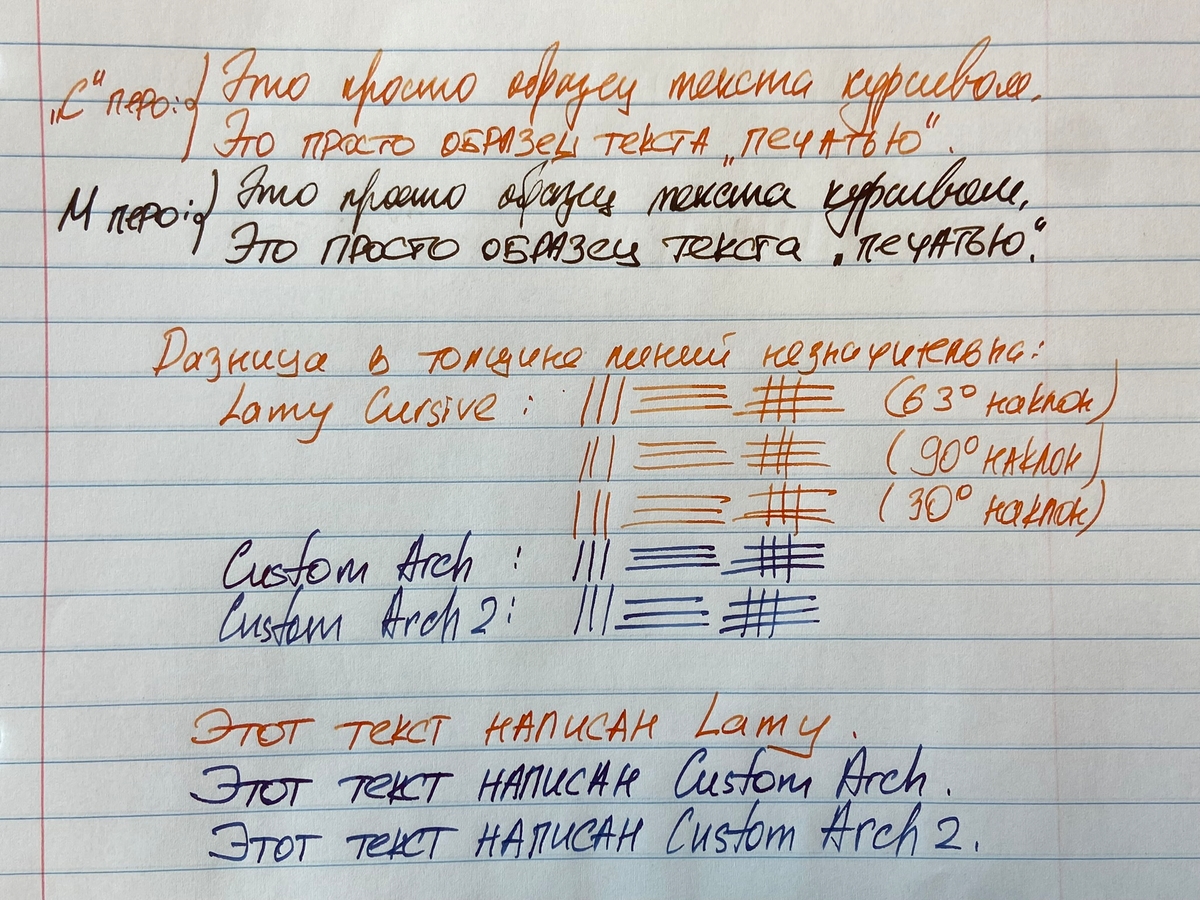 „С“ перо: Это просто образец текста курсивом.
Это просто образец текста „печатью“.
М перо: Это просто образец текста курсивом.
Это просто образец текста „печатью“.
Разница в толщине линий незначительна:
Lamy Cursive : (63° наклон)
(90° наклон)
(30° наклон)
Custom Arch :
Custom Arch 2 :
Этот текст написан Lamy.
Этот текст написан Custom Arch.
Этот текст написан Custom Arch 2.